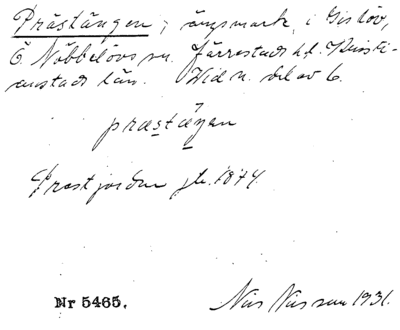 Prästängen, ängsmark, i Gislöv,
Ö. Nöbbelövs sn. Järresta​ds hd. Kristi-
anstads län. Hid n. del av 6.
præstæŋen
Prestjorden jb. 1874.
Nr 5465. Nils Nilsson 1931.